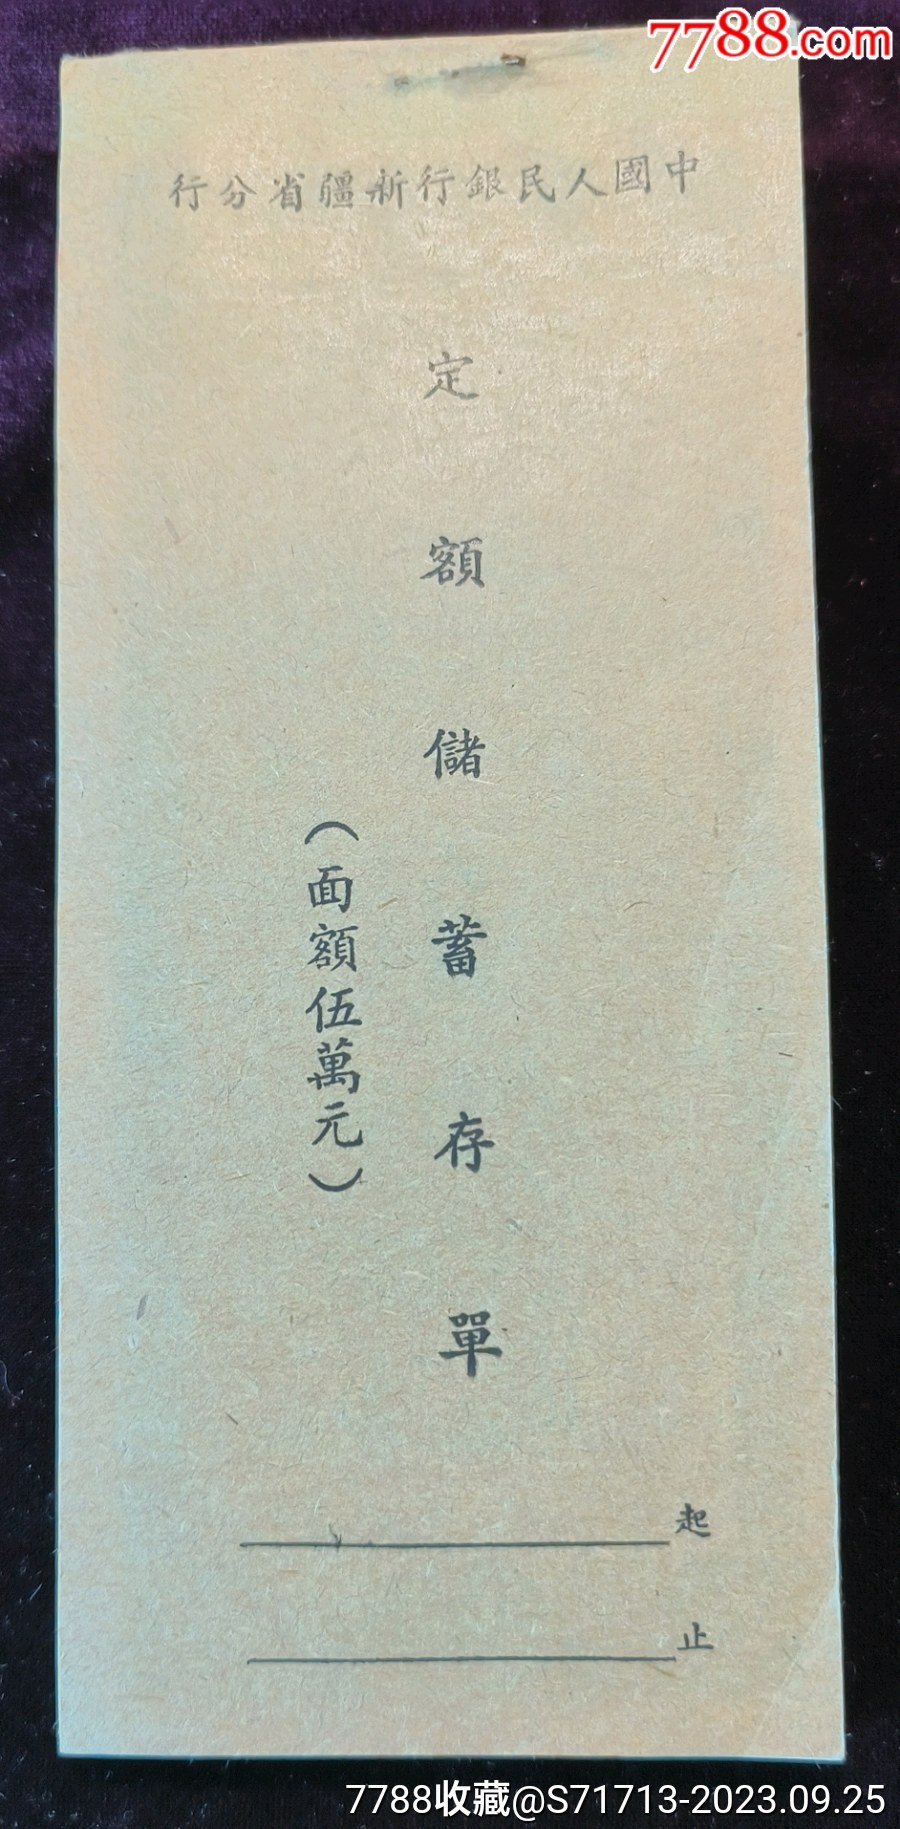 7788.com
中國人民銀行新疆省分行
定額儲蓄存單
（面額伍萬元）
起
止
7788收藏@S71713-2023.09.25